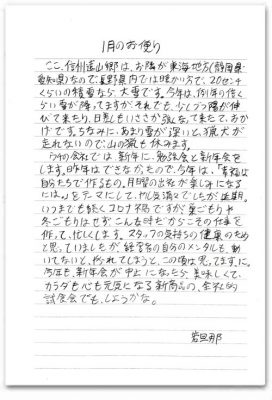 1月のお便り
ここ、信州遠山郷は、お隣が東海地方(静岡県・
愛知県)なので、長野県内では暖かい方で、20センチ
くらいの積雪なら、大雪です。今年は、例年の倍く
らい雪が降ってますがそれでも、少しづつ陽が伸
びて来たり、日差しもいささか強くなって来たで、おか
げさまです。ちなみに、あまり雪が深いと、猟犬が
走れないので、山の猟も休みます。
うちの会社では、新年に、勉強会と新年会を
します。昨年はできなかったので、今年は、「幸福は
自分たちで作るもの。月曜の出社が楽しみになる
には。」をテーマにして、やる気満々でしたが延期。
いつまでも続くコロナ禍ですが、巣ごもりや
冬ごもりはせず、こんな時だからこその仕事を
作って、忙しくします。スタッフの気持ちの健康のため
と思っていましたが、経営者の自分のメンタルも、動
いてないと、やられてしまうと、この頃は思ってます。に
今年も、新年会が中止になったら、美味しくて、
カラダも心も元気になる新商品の、全社的
試食会でも、しようかな。
若旦那